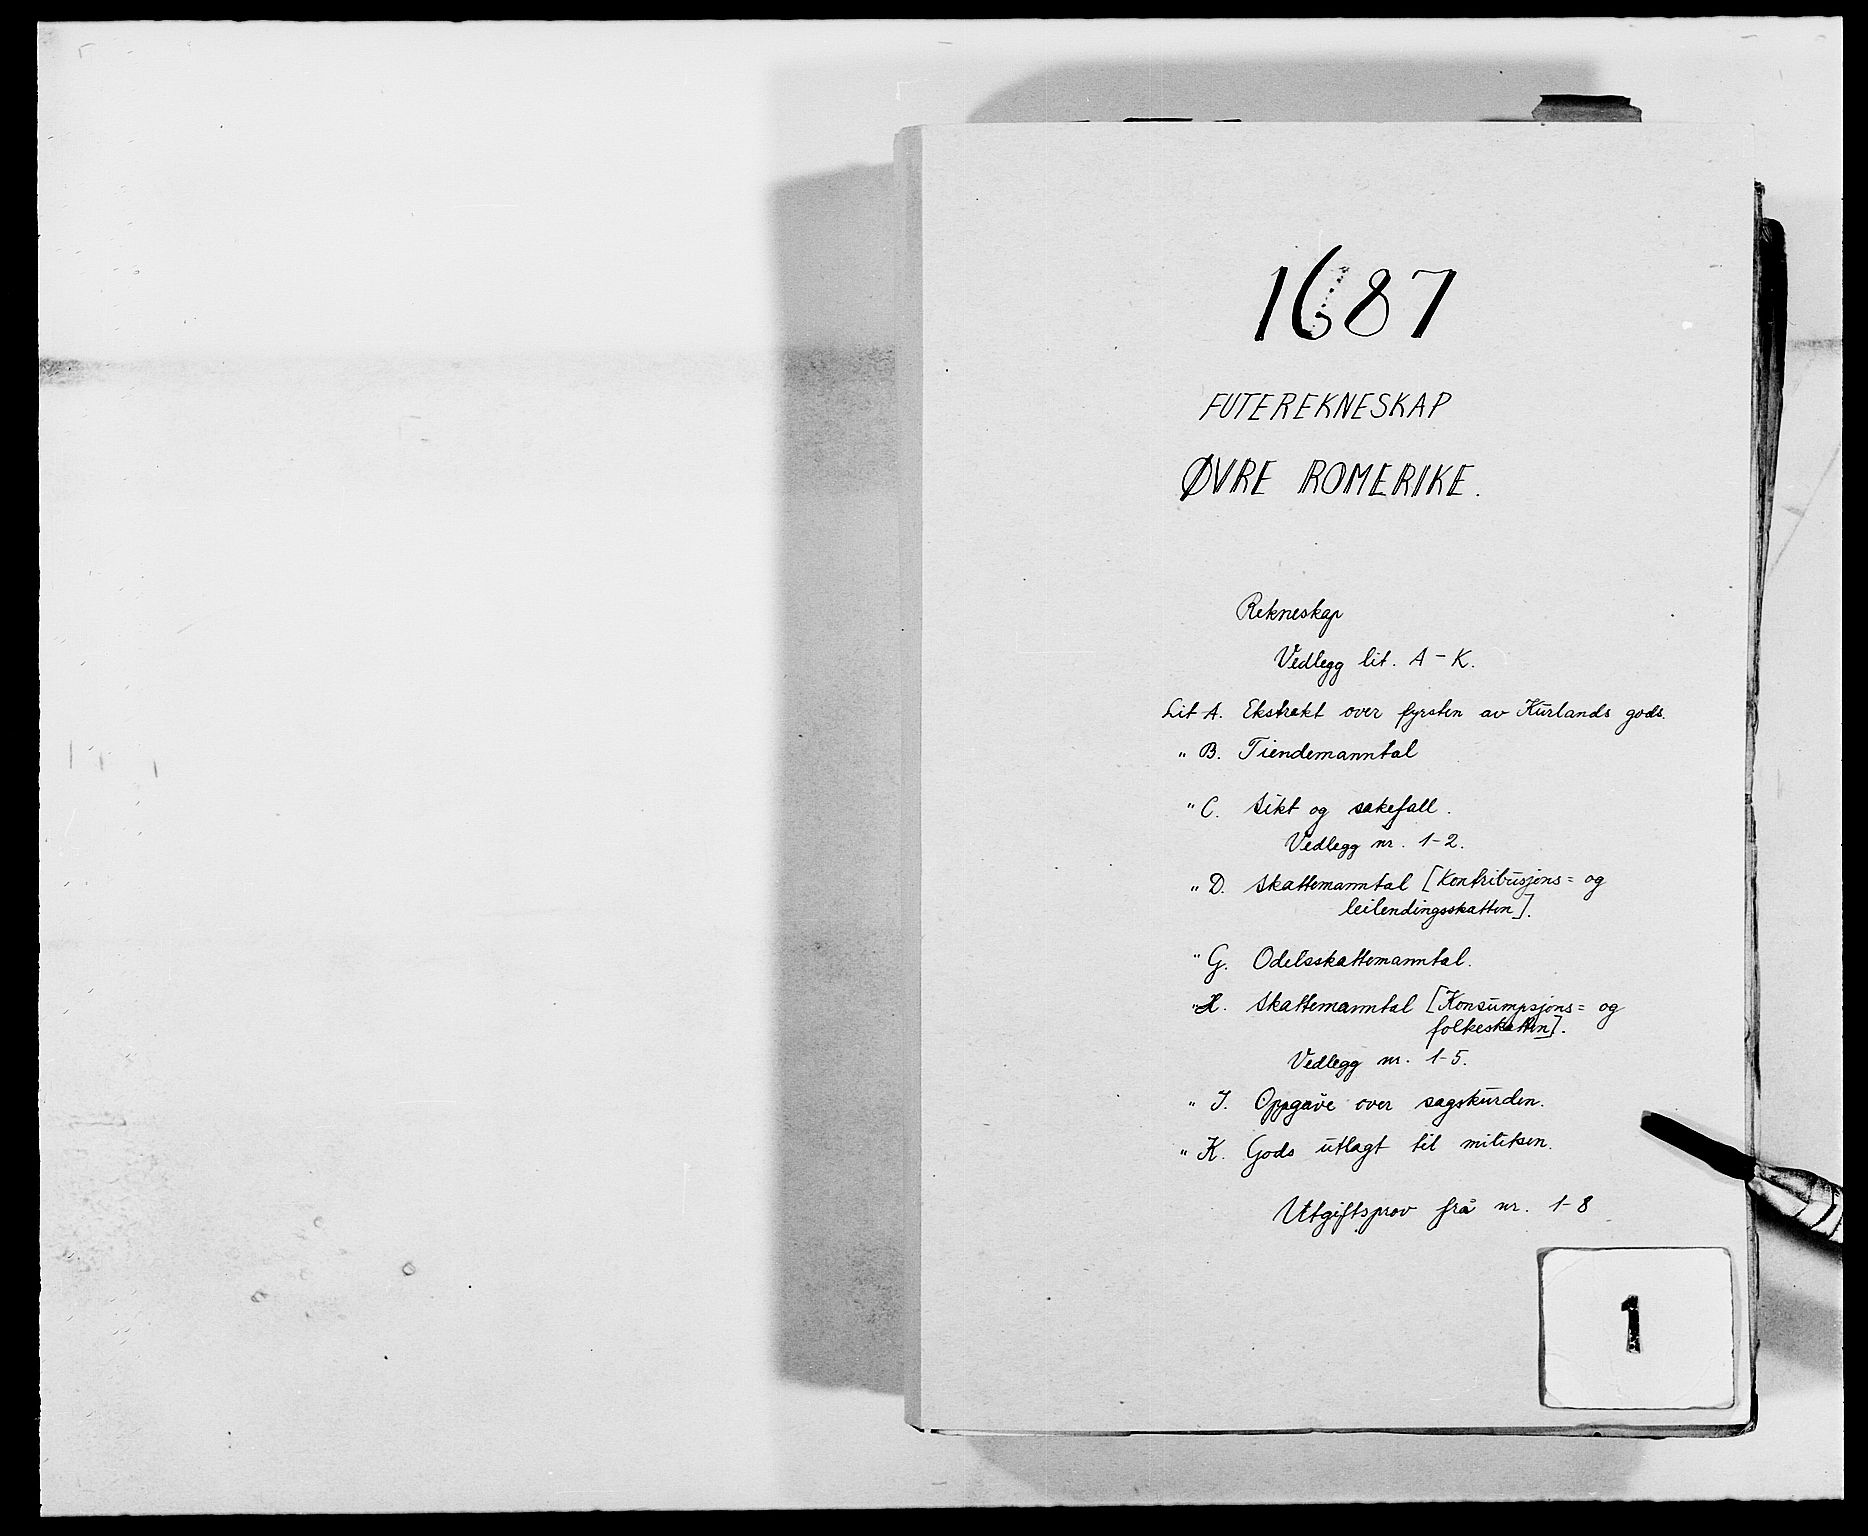 1687
FUTEREKNESKAP
ØVRE ROMERIKE.
Rekneskap
Vedlegg lit. A - K.
Lit A. Ekstrakt over fyrsten av Kurlands gods.
" B. Tiendemanntal
" C. Sikt og sakefall.
Vedlegg nr. 1-2.
" D. Skattemanntal [Kontribusjons= og
leilendingsskatten].
" G. Odelsskattemanntal.
" H. Skattemanntal [Konsumpsjons= og
folkeskatten].
Vedlegg nr. 1-5.
" J. Oppgave over sagskurden.
" K. Gods utlagt til militsen.
Utgiftsprov frå nr. 1-8
1